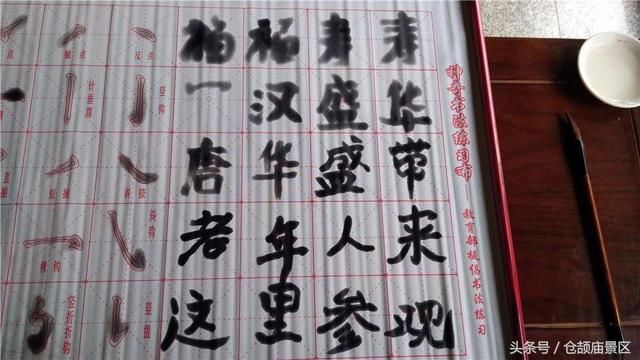 杨杨寿寿
一汉盛华
唐华盛带
老年人来
这里参观
神奇书法练习布
教育部提倡书法练习
点
撇点
反点
竖钩
直撇
短撇
斜捺
横钩
斜钩
竖折折钩
竖提
头条号／仓颉庙景区